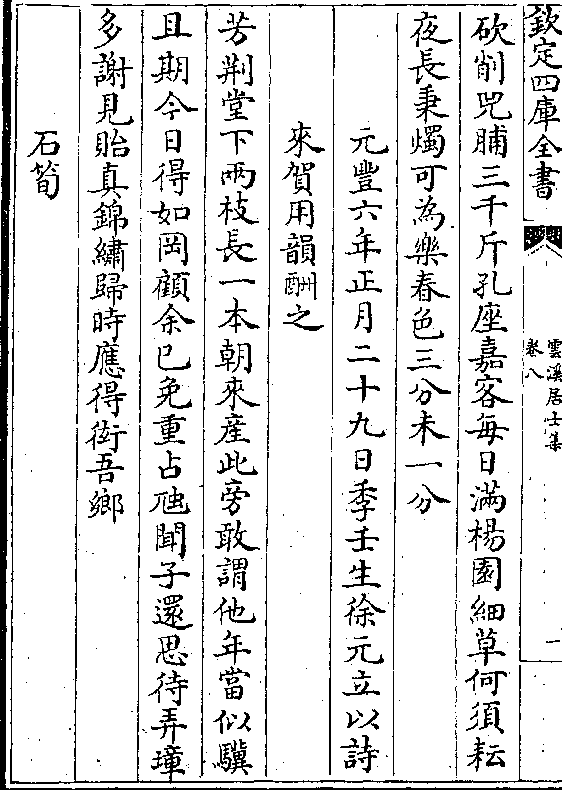 欽定四庫全書
雲溪居士集
卷八
一
砍削兕脯三千斤孔座嘉客毎日滿楊園細草何須耘
夜長秉燭可為樂春色三分未一分
元豐六年正月二十九日季壬生徐元立以詩
來賀用韻酬之
芳荆堂下兩枝長一本朝來産此旁敢謂他年當似驥
且期今日得如岡顧余已免重占虺聞子還思待弄璋
多謝見貽真錦繡歸時應得衒吾鄉
石筍